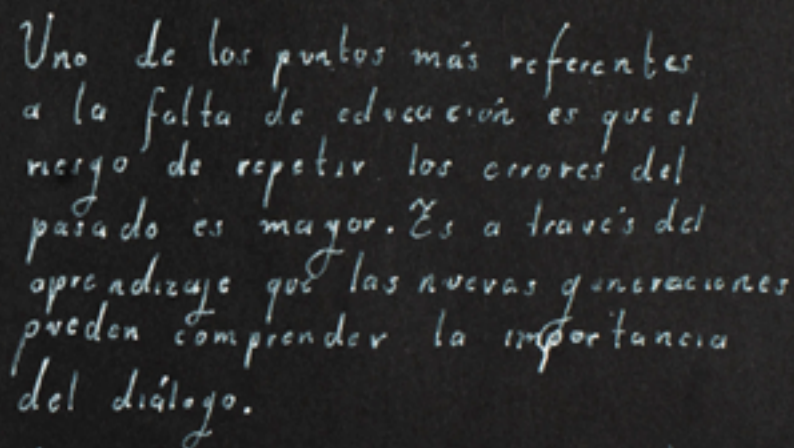 Uno de los puntos más referentes
a la falta de educación es que el
riesgo de repetir los errores del
pasado es mayor. Es a través del
aprendizaje que las nuevas generaciones
pueden comprender la importancia
del diálogo.